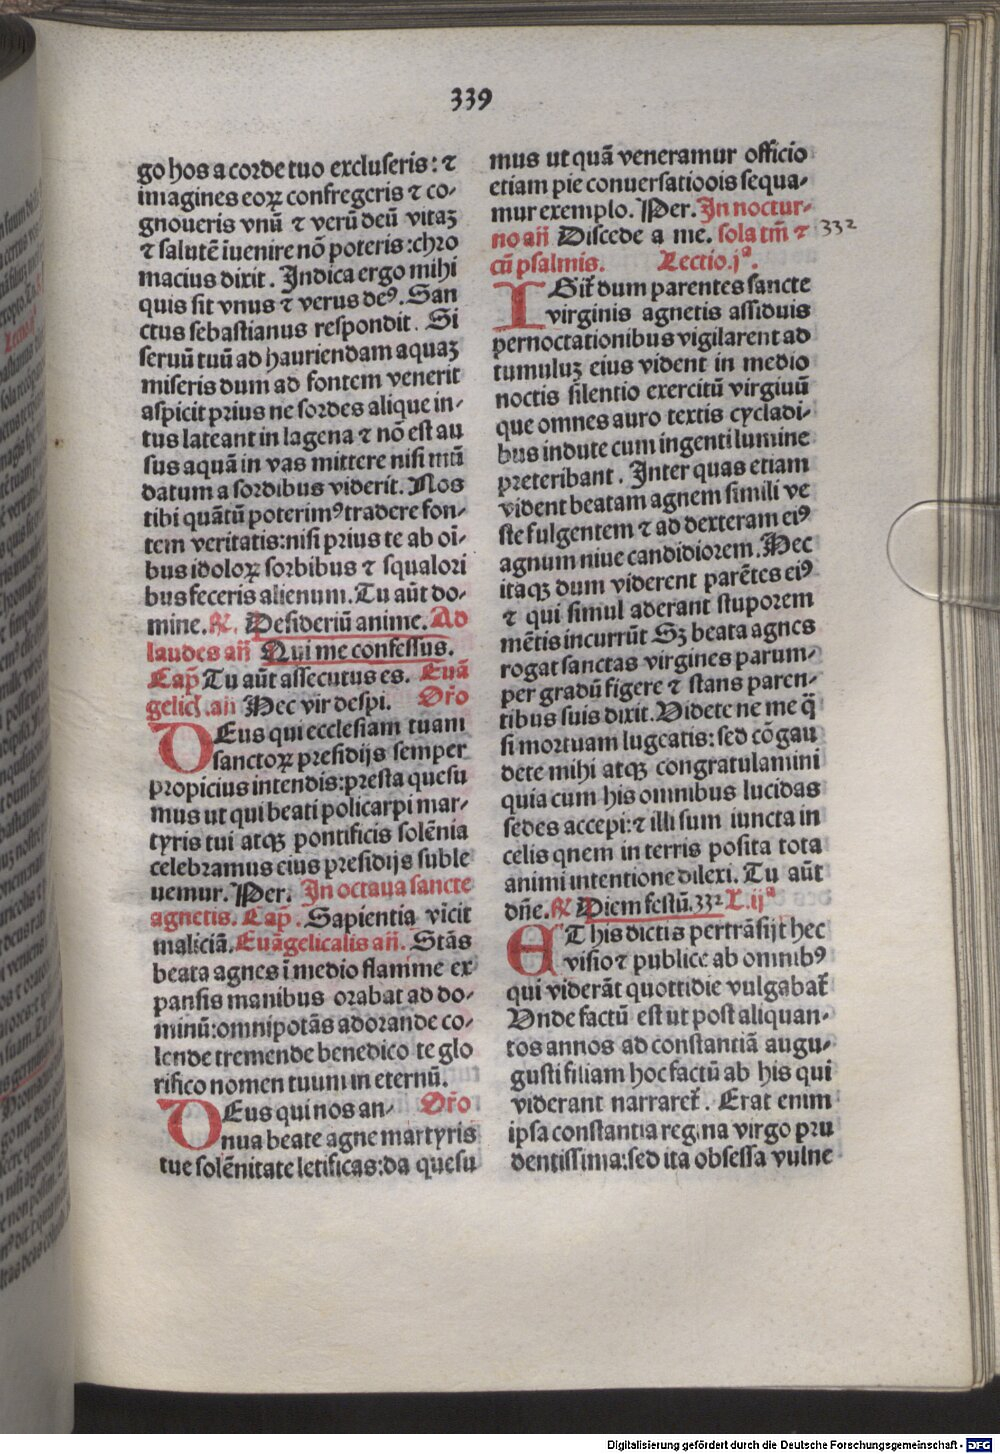 339
go hos a corde tuo excluseris: ⁊
imagines eoꝝ confregeris ⁊ co-
gnoueris vnū ⁊ verū deū vitaꝫ
⁊ salutē īuenire nō poteris:chro
macius dixit. Indica ergo mihi
quis sit vnus ⁊ verus deꝰ. San
ctus sebastianus respondit. Si
seruū tuū ad hauriendam aquaꝫ
miseris dum ad fontem venerit
aspicit prius ne sordes alique in-
tus lateant in lagena ⁊ nō est au
sus aquā in vas mittere nisi mū
datum a sordibus viderit. Nos
tibi quātū poterimꝰ tradere fon-
tem veritatis:nisi prius te ab oī-
bus idoloꝝ sorbibus ⁊ squalori
bus feceris alienum. Tu aūt do-
mine. ℟. Desideriū anime. Ad
laudes añ Qui me confessus.
Cap̄ Tu aūt assecutus es. Euā
gelic̄. añ Hec vir despi. Oro
DEus qui ecclesiam tuam
sanctoꝝ presidijs semper
propicius intendis:presta quesu
mus ut qui beati policarpi mar-
tyris tui atqꝫ pontificis solēnia
celebramus eius presidijs suble
uemur. Per. In octaua sancte
agnetis. Cap̄. Sapientia vicit
maliciā. Euāgelicalis añ. Stās
beata agnes ī medio flamme ex
pansis manibus orabat ad do-
minū:omnipotās adorande co-
lende tremende benedico te glo
rifico nomen tuum in eternū.
DEus qui nos an- Oro
nua beate agne martyris
tue solēnitate letificas:da quesu
mus ut quā veneramur officio
etiam pie conuersatioois sequa-
mur exemplo. Per. In noctur-
no añ Discede a me. sola tm̄ ⁊ 332
cū psalmis. Lectio.jª.
IGit᷑ dum parentes sancte
virginis agnetis assiduis
pernoctationibus vigilarent ad
tumuluꝫ eius vident in medio
noctis silentio exercitū virgiuū
que omnes auro textis cycladi-
bus indute cum ingenti lumine
preteribant. Inter quas etiam
vident beatam agnem simili ve
ste fulgentem ⁊ ad dexteram eiꝰ
agnum niue candidiorem. Hec
itaqꝫ dum viderent parētes eiꝰ
⁊ qui simul aderant stuporem
mētis incurrūt Sꝫ beata agnes
rogat sanctas virgines parum-
per gradū figere ⁊ stans paren-
tibus suis dixit. Videte ne me q̄
si mortuam lugeatis: sed cōgau
dete mihi atqꝫ congratulamini
quia cum his omnibus lucidas
sedes accepi:⁊ illi sum iuncta in
celis qnem in terris posita tota
animi intentione dilexi. Tu aūt
dñe. ℟ Diem festū. 332 L.ijª
ET his dictis pertrāsijt hec
visio ⁊ publice ab omnibꝰ
qui viderāt quottidie vulgabat᷑
Vnde factū est ut post aliquan-
tos annos ad constantiā augu-
gusti filiam hoc factū ab his qui
viderant narraret᷑. Erat enim
ipsa constantia regina virgo pru
dentissima:sed ita obsessa vulne
Digitalisierung gefördert durch die Deutsche Forschungsgemeinschaft - DFG